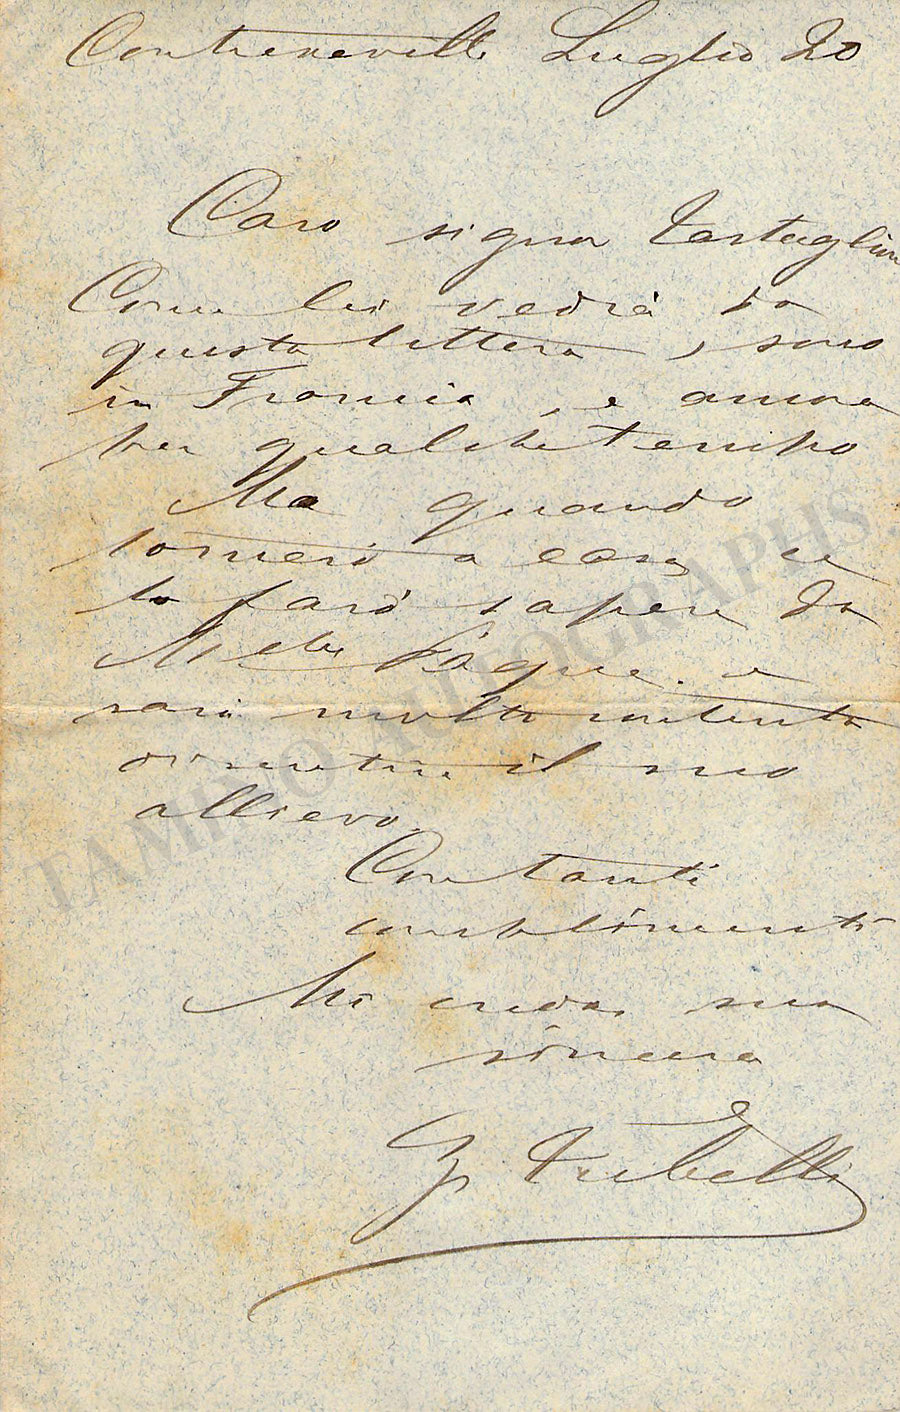 Contrexeville Luglio 20
Caro signor Tartaglione
Come lei vedrà da
questa lettera, sono
in Francia, e ancora
per qualche tempo
Ma quando
tornerò a casa, ce
lo farò sapere da
Melle e
sarò molto contenta
sentire il suo
allievo.
Con tanti
complimenti
Mi creda, sua
sincera
Z. Trebelli
TAMINO AUTOGRAPHS